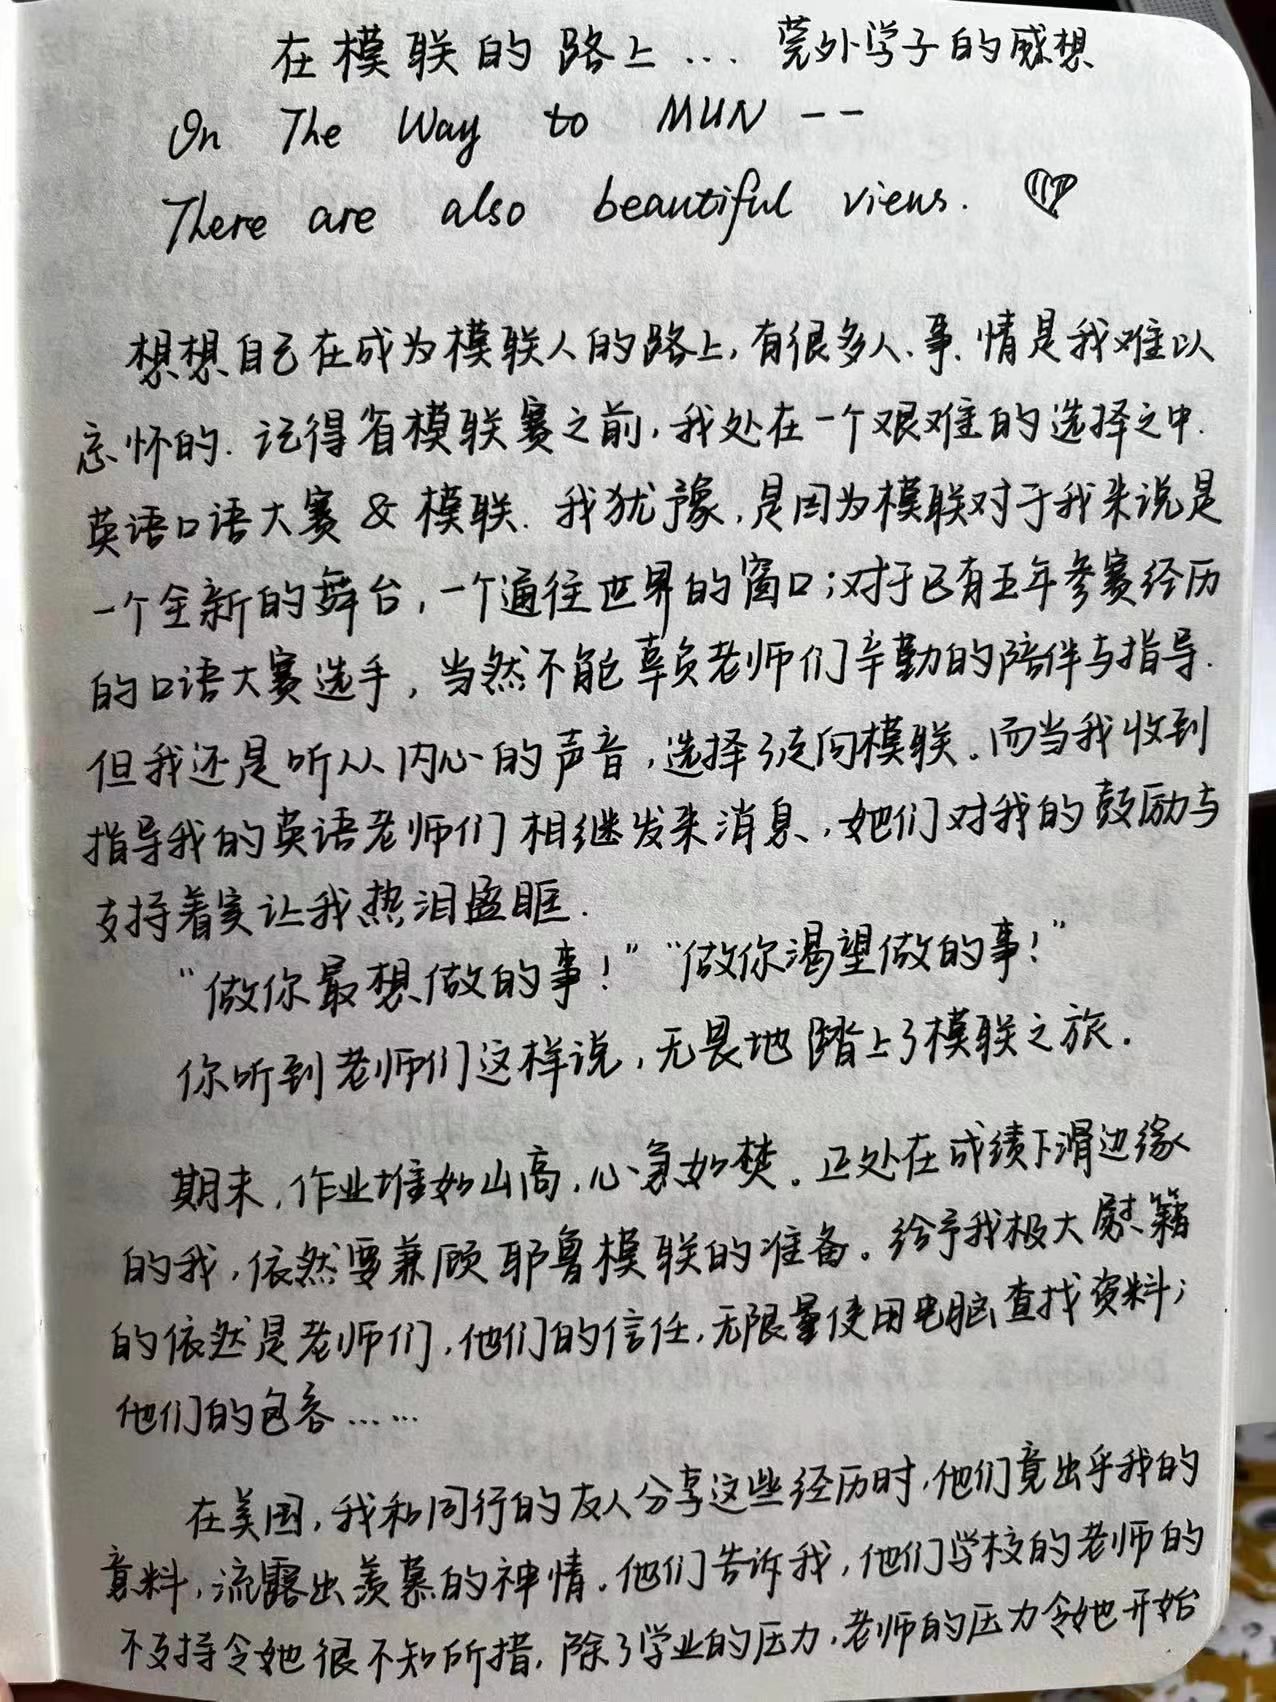 在模联的路上... 莞外学子的感想
On The Way to MUN --
There are also beautiful views.
想想自己在成为模联人的路上，有很多人、事、情是我难以
忘怀的. 记得省模联赛之前，我处在一个艰难的选择之中.
英语口语大赛 & 模联. 我犹豫，是因为模联对于我来说是
一个全新的舞台，一个通往世界的窗口；对于已有五年参赛经历
的口语大赛选手，当然不能辜负老师们辛勤的陪伴与指导.
但我还是听从内心的声音，选择了走向模联。而当我收到
指导我的英语老师们相继发来消息，她们对我的鼓励与
支持着实让我热泪盈眶.
“做你最想做的事！”“做你渴望做的事！”
你听到老师们这样说，无畏地踏上了模联之旅.
期末，作业堆如山高，心急如焚。正处在成绩下滑边缘
的我，依然要兼顾耶鲁模联的准备。给予我极大慰籍
的依然是老师们，他们的信任，无限量使用电脑查找资料；
他们的包容……
在美国，我和同行的友人分享这些经历时，他们竟出乎我的
意料，流露出羡慕的神情。他们告诉我，他们学校的老师的
不支持令她很不知所措，除了学业的压力，老师的压力令她开始